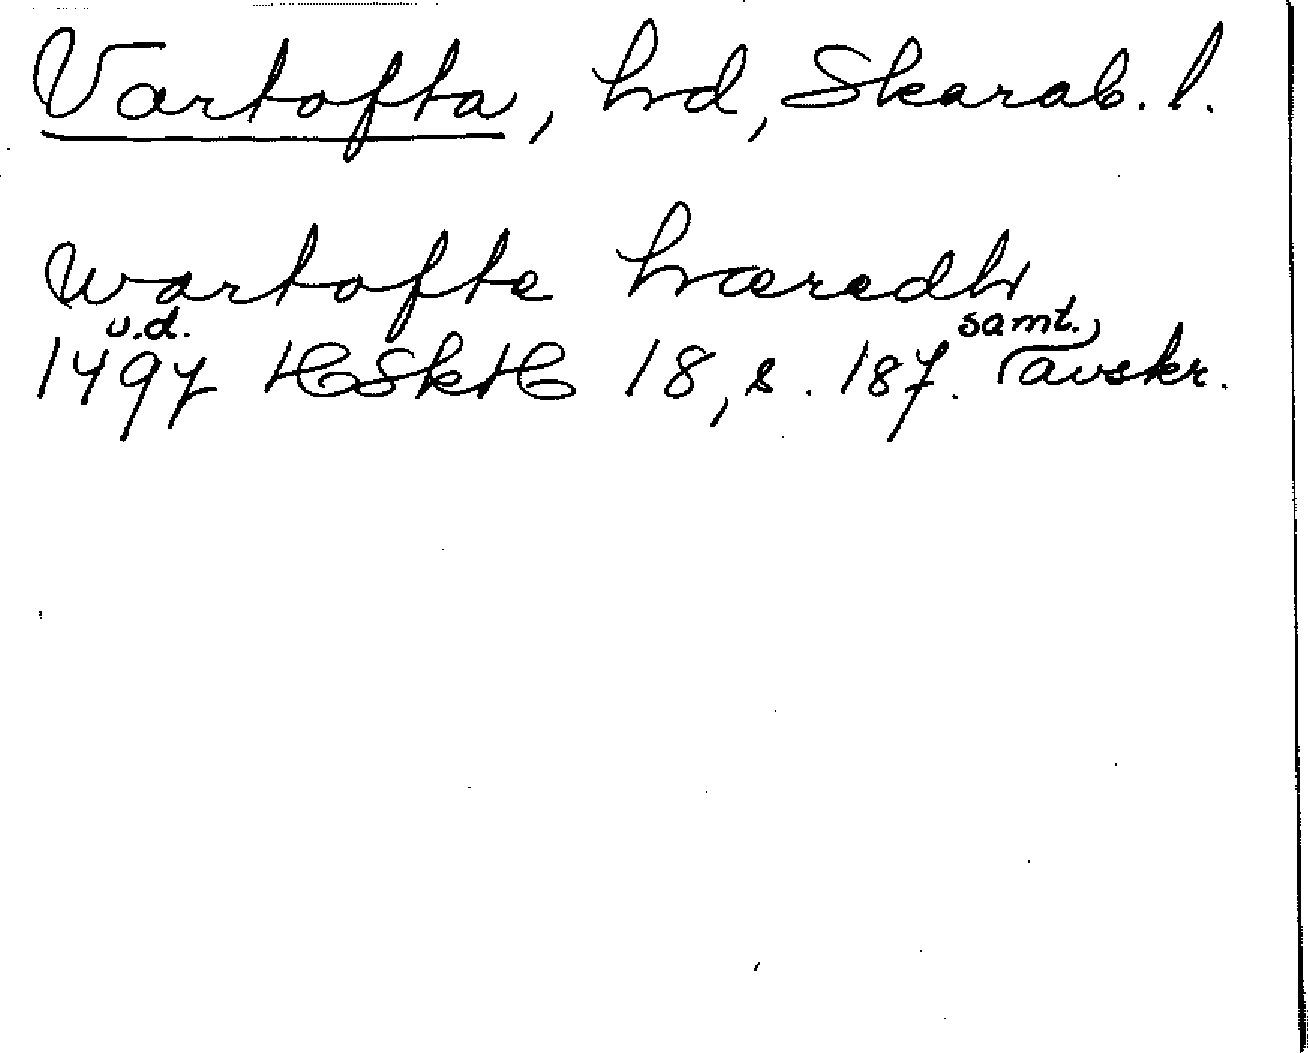 Vartofta, hd, Skarab. l.
wartofte hæredh
u.d. samt.,
1497 HSkH 18, s. 187. avskr.